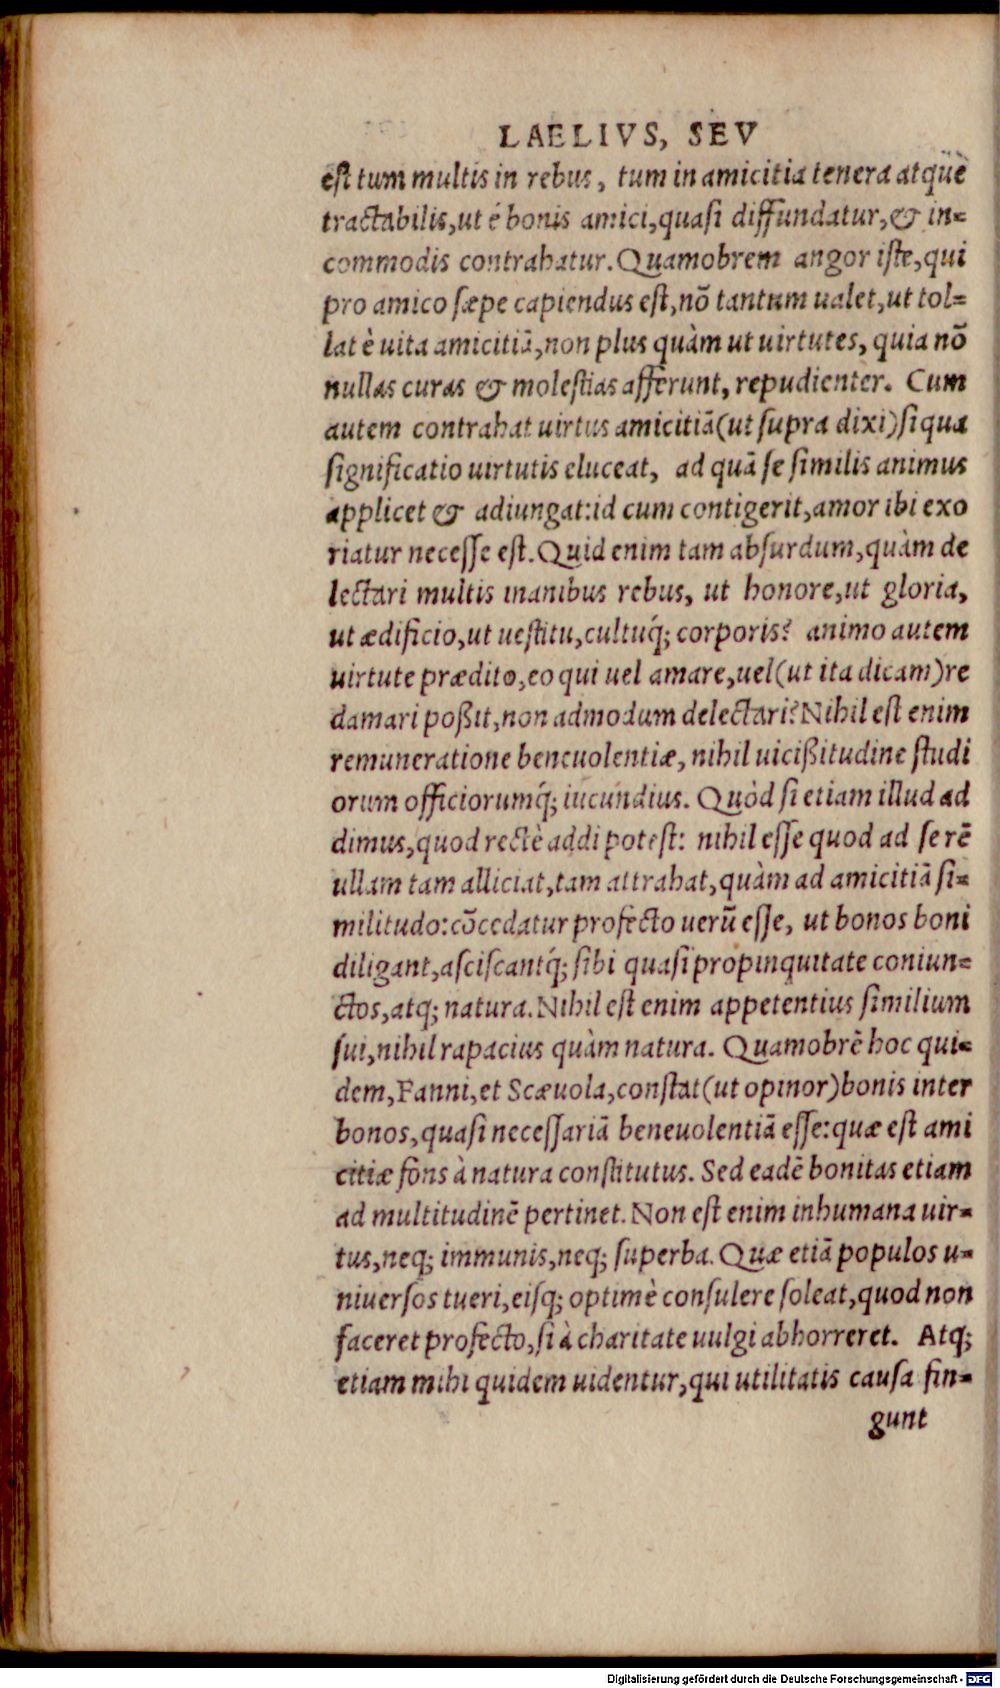 LAELIVS, SEV
est tum multis in rebus, tum in amicitia tenera atque
tractabilis, ut é bonis amici, quasi diffundatur, & in=
commodis contrahatur. Quamobrem angor iste, qui
pro amico sæpe capiendus est, nõ tantum ualet, ut tol=
lat è uita amicitiã, non plus quàm ut uirtutes, quia nõ
nullas curas & molestias afferunt, repudientur. Cum
autem contrahat uirtus amicitiã (ut supra dixi) si qua
significatio uirtutis eluceat, ad quã se similis animus
applicet & adiungat: id cum contigerit, amor ibi exo
riatur necesse est. Quid enim tam absurdum, quàm de
lectari multis inanibus rebus, ut honore, ut gloria,
ut ædificio, ut uestitu, cultuq́; corporis? animo autem
uirtute prædito, eo qui uel amare, uel (ut ita dicam) re
damari poßit, non admodum delectari? Nihil est enim
remuneratione beneuolentiæ, nihil uicißitudine studi
orum officiorumq́; iucundius. Quòd si etiam illud ad
dimus, quod rectè addi potest: nihil esse quod ad se rẽ
ullam tam alliciat, tam attrahat, quàm ad amicitiã si=
militudo: cõcedatur profecto uerũ esse, ut bonos boni
diligant, asciscantq́; sibi quasi propinquitate coniun=
ctos, atq; natura. Nihil est enim appetentius similium
sui, nihil rapacius quàm natura. Quamobrẽ hoc qui=
dem, Fanni, et Scæuola, constat (ut opinor) bonis inter
bonos, quasi necessariã beneuolentiã esse: quæ est ami
citiæ fons à natura constitutus. Sed eadẽ bonitas etiam
ad multitudinẽ pertinet. Non est enim inhumana uir=
tus, neq; immunis, neq; superba. Quæ etiã populos u=
niuersos tueri, eisq; optimè consulere soleat, quod non
faceret profecto, si à charitate uulgi abhorreret. Atq;
etiam mihi quidem uidentur, qui utilitatis causa fin=
gunt
Digitalisierung gefördert durch die Deutsche Forschungsgemeinschaft - DFG